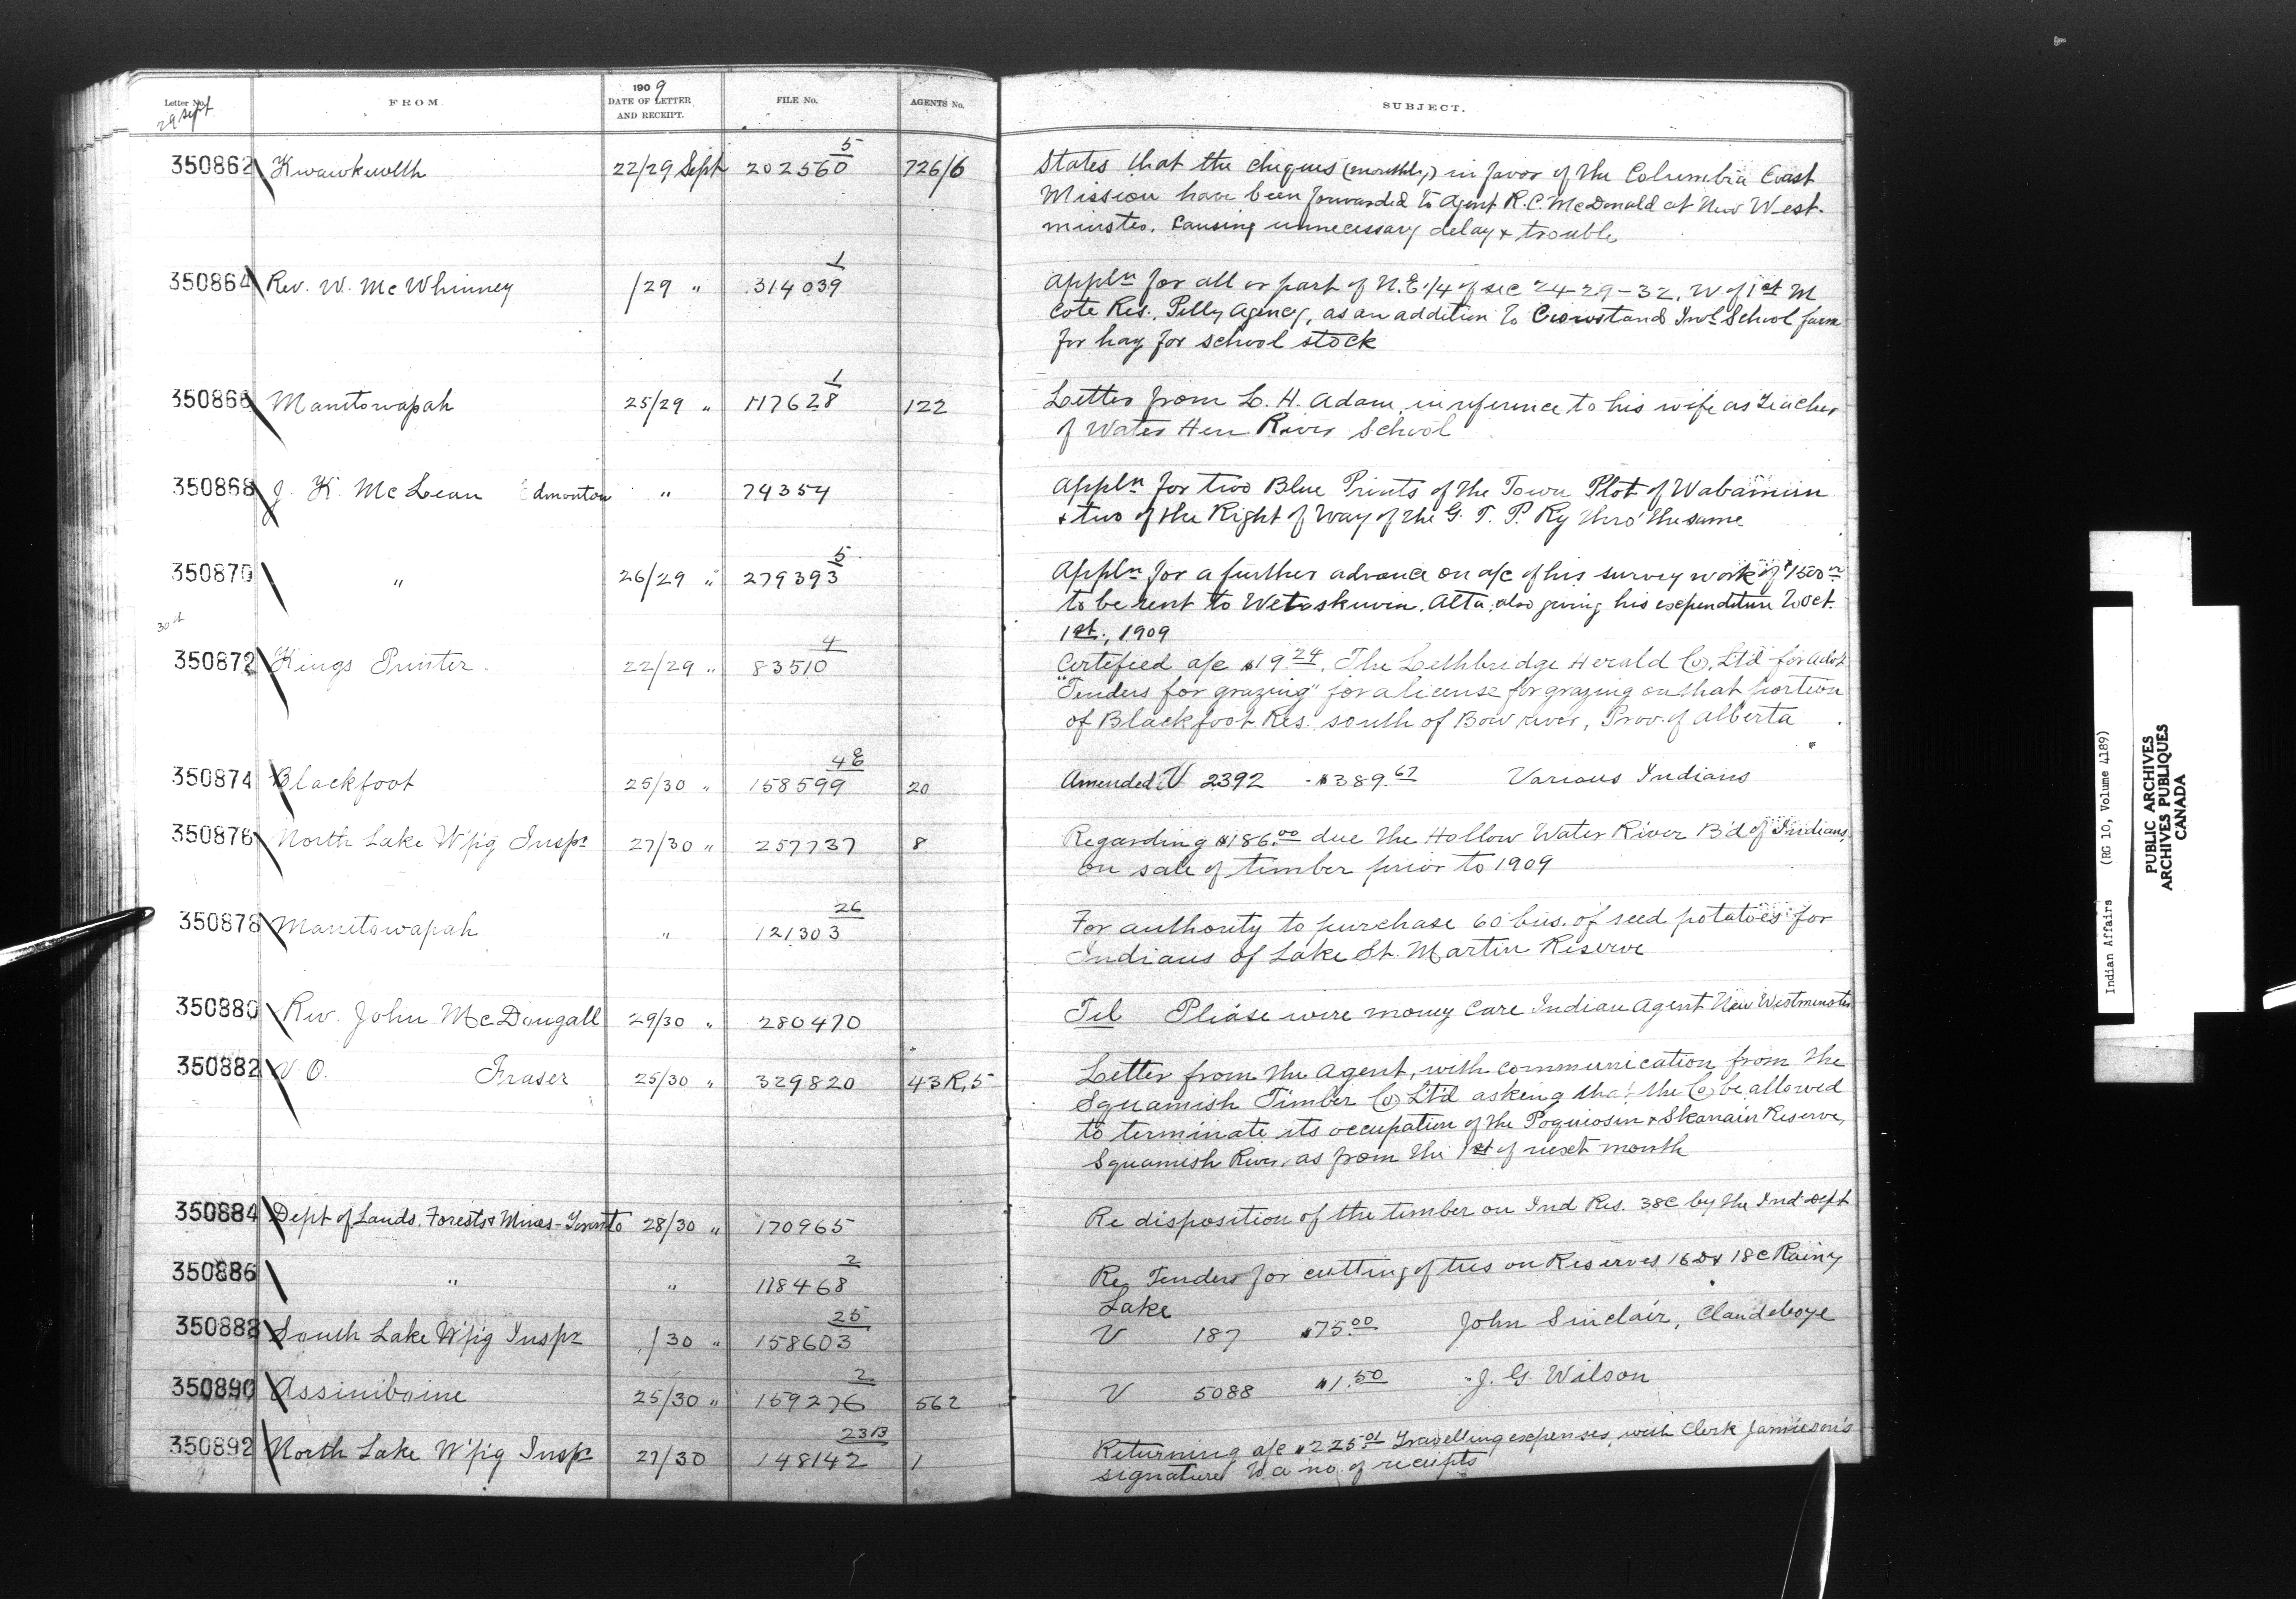 Letter No. FROM 1909 DATE OF LETTER AND RECEIPT. FILE No. AGENTS No. SUBJECT.
29 Sept
350862 Kwawkewlth 22/29 Sept 202560 5 726/6 States that the cheques (monthly) in favor of the Columbia Coast
Mission have been forwarded to Agent R.C. McDonald at New West-
minster. Causing unnecessary delay & trouble
350864 Rev. W. McWhinney /29 " 314039 1 Appln for all or part of N.E. 1/4 of sec 24-29-32. W of 1st M
Cote Res., Pelly Agency, as an addition to Crowstand Indl School farm
for hay for school stock
350866 Manitowapah 25/29 " 117628 1 122 Letter from L. H. Adam, in reference to his wife as Teacher
of Water Hen River School
350868 J. K. McLean Edmonton " 74354 Appln for two Blue Prints of the Town Plot of Wabamun
& two of the Right of Way of the G. T. P. Ry thro' the same
350870 " 26/29 " 279393 5 Appln for a further advance on a/c of his survey work of $1500
to be sent to Wetaskiwin. Alta, also giving his expenditure to Oct.
1st., 1909
30st
350872 Kings Printer 22/29 " 83510 4 Certified a/c $19.24. The Lethbridge Herald Co. Ltd for Advt
"Tenders for grazing" for a license for grazing on that portion
of Blackfoot Res. south of Bow river, Prov. of Alberta
350874 Blackfoot 25/30 " 158599 4E 20 Amended V 2392 - $389.67 Various Indians
350876 North Lake W'pg Inspr 27/30 " 257737 8 Regarding $186.00 due the Hollow Water River B'd of Indians
on sale of timber prior to 1909
350878 Manitowapah " 121303 26 For authority to purchase 60 bus. of seed potatoes for
Indians of Lake St. Martin Reserve
350880 Rev. John McDougall 29/30 " 280470 Tel Please wire money care Indian Agent New Westminster
350882 V. O. Fraser 25/30 " 329820 43R,5 Letter from the Agent, with communication from the
Squamish Timber Co Ltd asking that the Co be allowed
to terminate its occupation of the Poquiosin & Skamain Reserve,
Squamish River, as from the 1st of next month
350884 Dept of Lands, Forests & Mines - Toronto 28/30 " 170965 Re disposition of the timber on Ind Res. 38C by the Ind Dept
350886 " " 118468 2 Re Tenders for cutting of ties on Reserves 16D & 18C Rainy
Lake
350888 South Lake W'pg Inspr /30 " 158603 25 V 187 $75.00 John Sinclair, Clandeboye
350890 Assiniboine 25/30 " 159276 2 562 V 5088 $1.50 J. G. Wilson
350892 North Lake W'pg Inspr 27/30 148142 23B 1 Returning a/c $225.01 Travelling expenses, with Clerk Jamieson's
signature to a no. of receipts
Indian Affairs (RG 10, Volume 4189)
PUBLIC ARCHIVES
ARCHIVES PUBLIQUES
CANADA